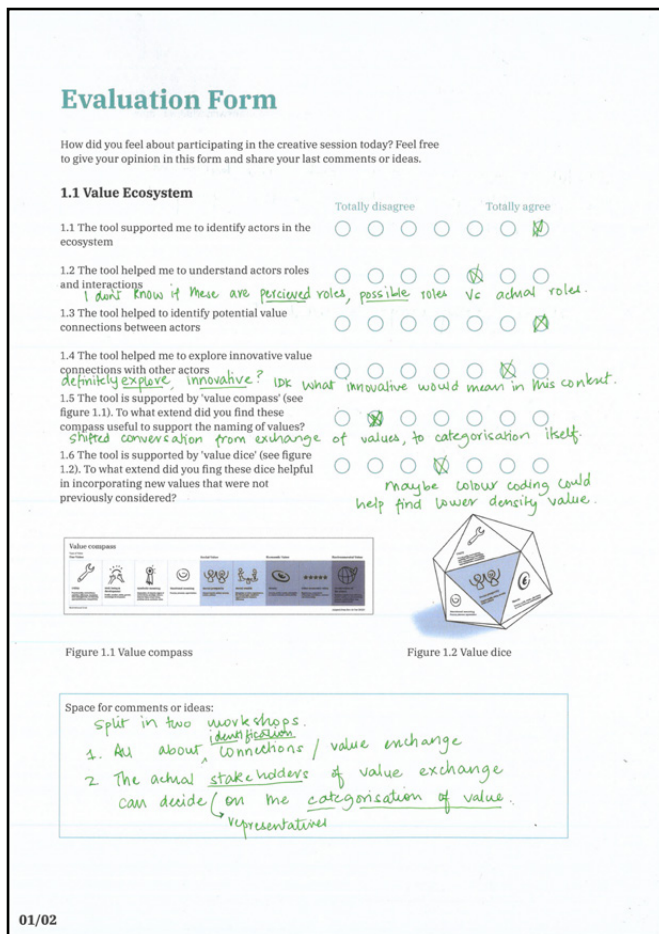 Evaluation Form
How did you feel about participating in the creative session today? Feel free
to give your opinion in this form and share your last comments or ideas.
1.1 Value Ecosystem
Totally disagree Totally agree
1.1 The tool supported me to identify actors in the
ecosystem
1.2 The tool helped me to understand actors roles
and interactions
I don't know if these are percieved roles, possible roles Vs actual roles.
1.3 The tool helped to identify potential value
connections between actors
1.4 The tool helped me to explore innovative value
connections with other actors
definitely explore, innovative? IDK what innovative would mean in this context.
1.5 The tool is supported by 'value compass' (see
figure 1.1). To what extend did you find these
compass useful to support the naming of values?
shifted conversation from exchange of values, to categorisation itself.
1.6 The tool is supported by 'value dice' (see figure
1.2). To what extend did you fing these dice helpful
in incorporating new values that were not
previously considered?
maybe colour coding could
help find lower density value.
Value compass
Figure 1.1 Value compass
Figure 1.2 Value dice
Space for comments or ideas:
split in two workshops.
identification
1. All about connections / value exchange
2 The actual stakeholders of value exchange
can decide on the categorisation of value.
representatives
01/02